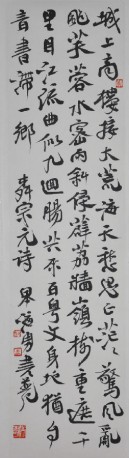 城上高樓接大荒海天愁思正茫茫驚風亂
颭芙蓉水密雨斜侵薜荔牆嶺樹重遮千
里目江流曲似九回腸共來百粵文身地猶自
音書滯一鄉 柳宗元詩